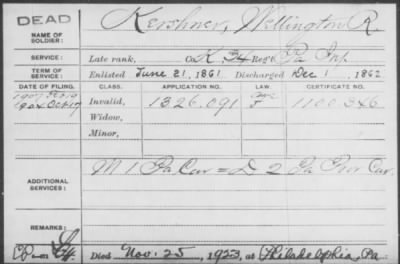 DEAD
NAME OF SOLDIER: Kershner, Wellington R.
SERVICE: Late rank, Co. K, 34 Reg't Pa Inf.
TERM OF SERVICE: Enlisted June 21, 1861 Discharged Dec 1, 1862
DATE OF FILING. CLASS. APPLICATION NO. CERTIFICATE NO.
1904 Oct 17 Invalid, 1326.091 1100346
Widow,
Minor,
ADDITIONAL SERVICES: M 1 Pa Cav = D 2 Pa Prov Cav.
REMARKS:
Died Nov. 25, 1923, at Philadelphia, Pa